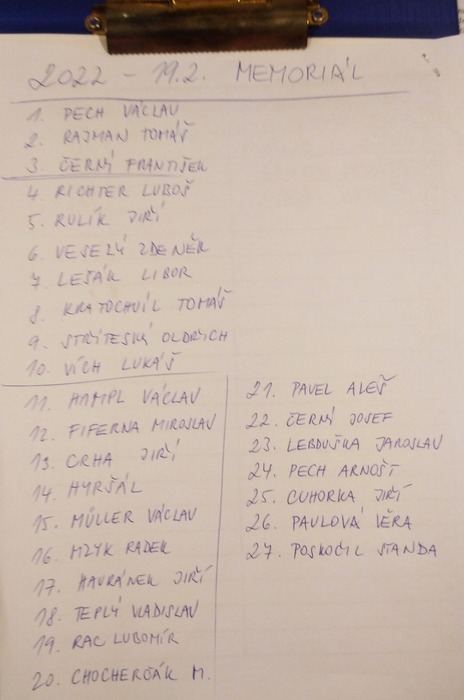 2022 - 19.2. MEMORIÁL
1. PECH VÁCLAV
2. RAJMAN TOMÁŠ
3. ČERNÝ FRANTIŠEK
4. RICHTER LUBOŠ
5. RULÍK JIŘÍ
6. VESELÝ ZDENĚK
7. LEŠÁK LIBOR
8. KRATOCHVÍL TOMÁŠ
9. STŘÍTESKÝ OLDŘICH
10. VÍCH LUKÁŠ
11. HAMPL VÁCLAV
12. FIFERNA MIROSLAV
13. CRHA JIŘÍ
14. HYRŠÁL
15. MÜLLER VÁCLAV
16. MZYK RADEK
17. HAVRÁNEK JIŘÍ
18. TEPLÝ VLADISLAV
19. RAC LUBOMÍR
20. CHOCHERČÁK M.
21. PAVEL ALEŠ
22. ČERNÝ JOSEF
23. LEBDUŠKA JAROSLAV
24. PECH ARNOŠT
25. CUHORKA JIŘÍ
26. PAULOVÁ VĚRA
27. POSKOČIL STANDA